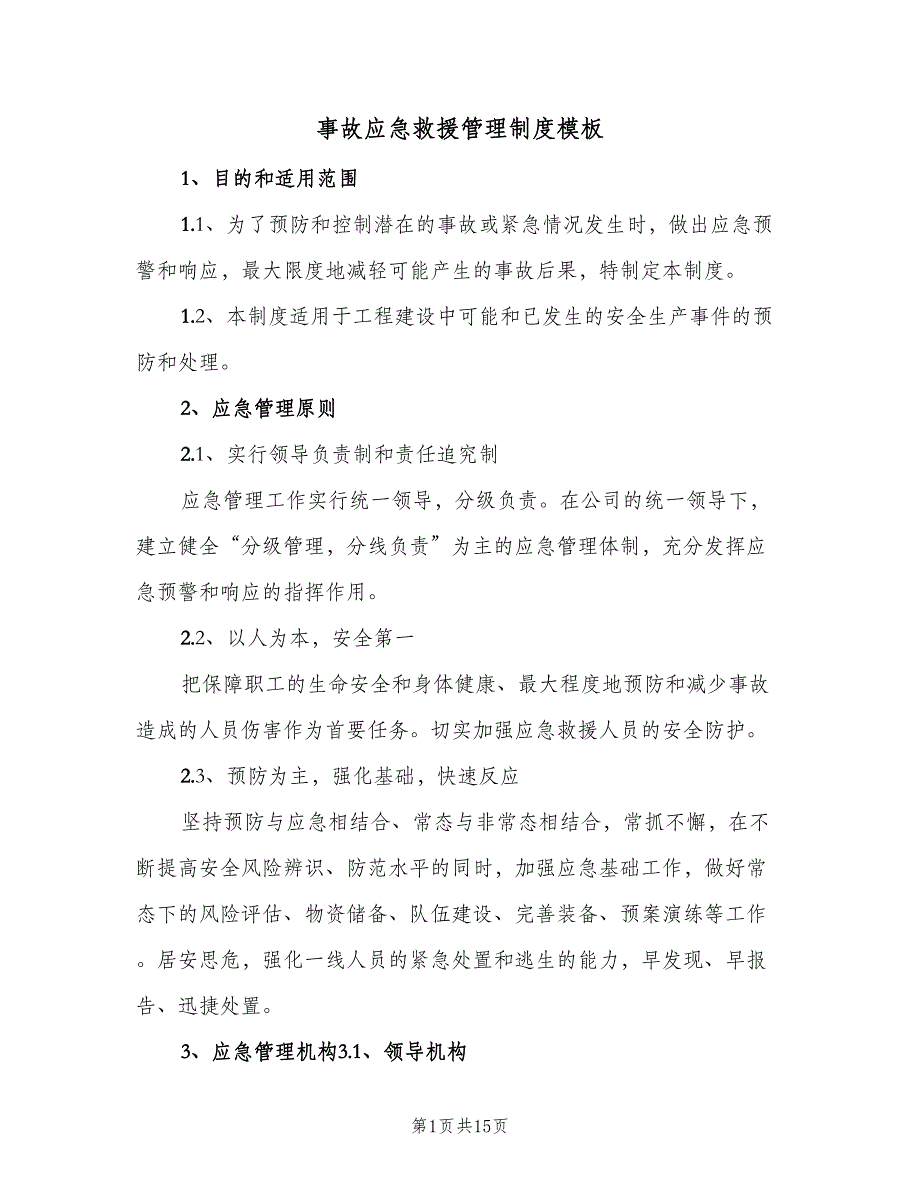 事故应急救援管理制度模板
1、目的和适用范围
1.1、为了预防和控制潜在的事故或紧急情况发生时，做出应急预
警和响应，最大限度地减轻可能产生的事故后果，特制定本制度。
1.2、本制度适用于工程建设中可能和已发生的安全生产事件的预
防和处理。
2、应急管理原则
2.1、实行领导负责制和责任追究制
应急管理工作实行统一领导，分级负责。在公司的统一领导下，
建立健全“分级管理，分线负责”为主的应急管理体制，充分发挥应
急预警和响应的指挥作用。
2.2、以人为本，安全第一
把保障职工的生命安全和身体健康、最大程度地预防和减少事故
造成的人员伤害作为首要任务。切实加强应急救援人员的安全防护。
2.3、预防为主，强化基础，快速反应
坚持预防与应急相结合、常态与非常态相结合，常抓不懈，在不
断提高安全风险辨识、防范水平的同时，加强应急基础工作，做好常
态下的风险评估、物资储备、队伍建设、完善装备、预案演练等工作
。居安思危，强化一线人员的紧急处置和逃生的能力，早发现、早报
告、迅捷处置。
3、应急管理机构3.1、领导机构
第1页共15页